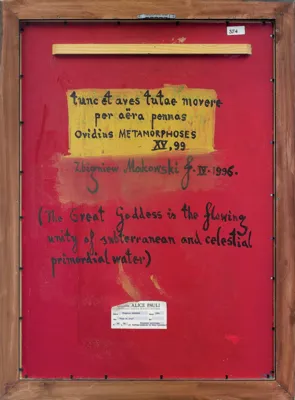 tunc et aves tutae movere
per aëra pennas
Ovidius METAMORPHOSES
XV, 99
Zbigniew Makowski f. IV. 1996.
(The Great Goddess is the flowing
unity of subterranean and celestial
primordial water)
ALICE PAULI